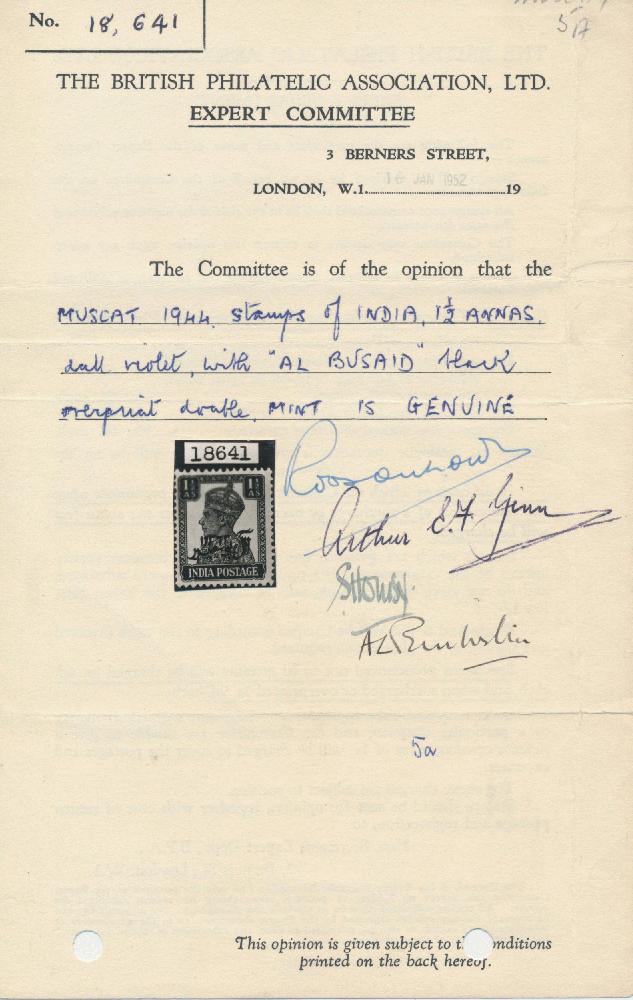 No. 18,641
5A
THE BRITISH PHILATELIC ASSOCIATION, LTD.
EXPERT COMMITTEE
3 BERNERS STREET,
LONDON, W.1. 16 JAN 1952 19
The Committee is of the opinion that the
MUSCAT 1944. Stamps of INDIA, 1½ ANNAS.
dull violet, with "AL BUSAID" black
overprint double, MINT IS GENUINE
18641
1½ AS 1½ AS
INDIA POSTAGE
Arthur E.F. Ginn
5a
This opinion is given subject to t nditions
printed on the back hereof.